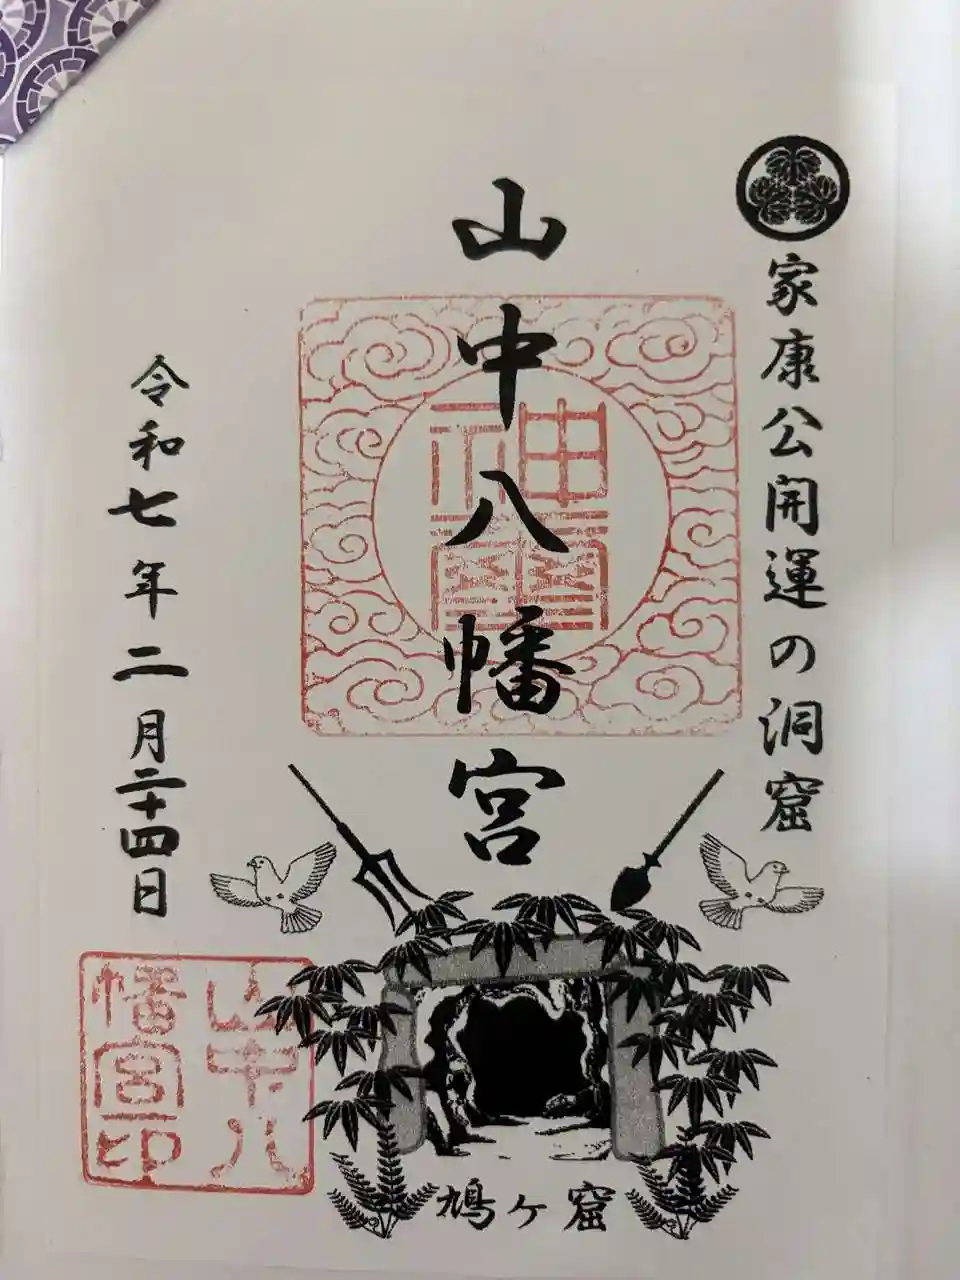 家康公開運の洞窟
山中八幡宮
神璽
令和七年二月二十四日
山中八
幡宮印
鳩ヶ窟